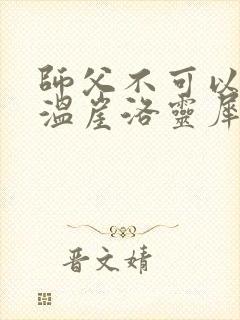 師父不可以
溫崖洛靈犀
晋文婧